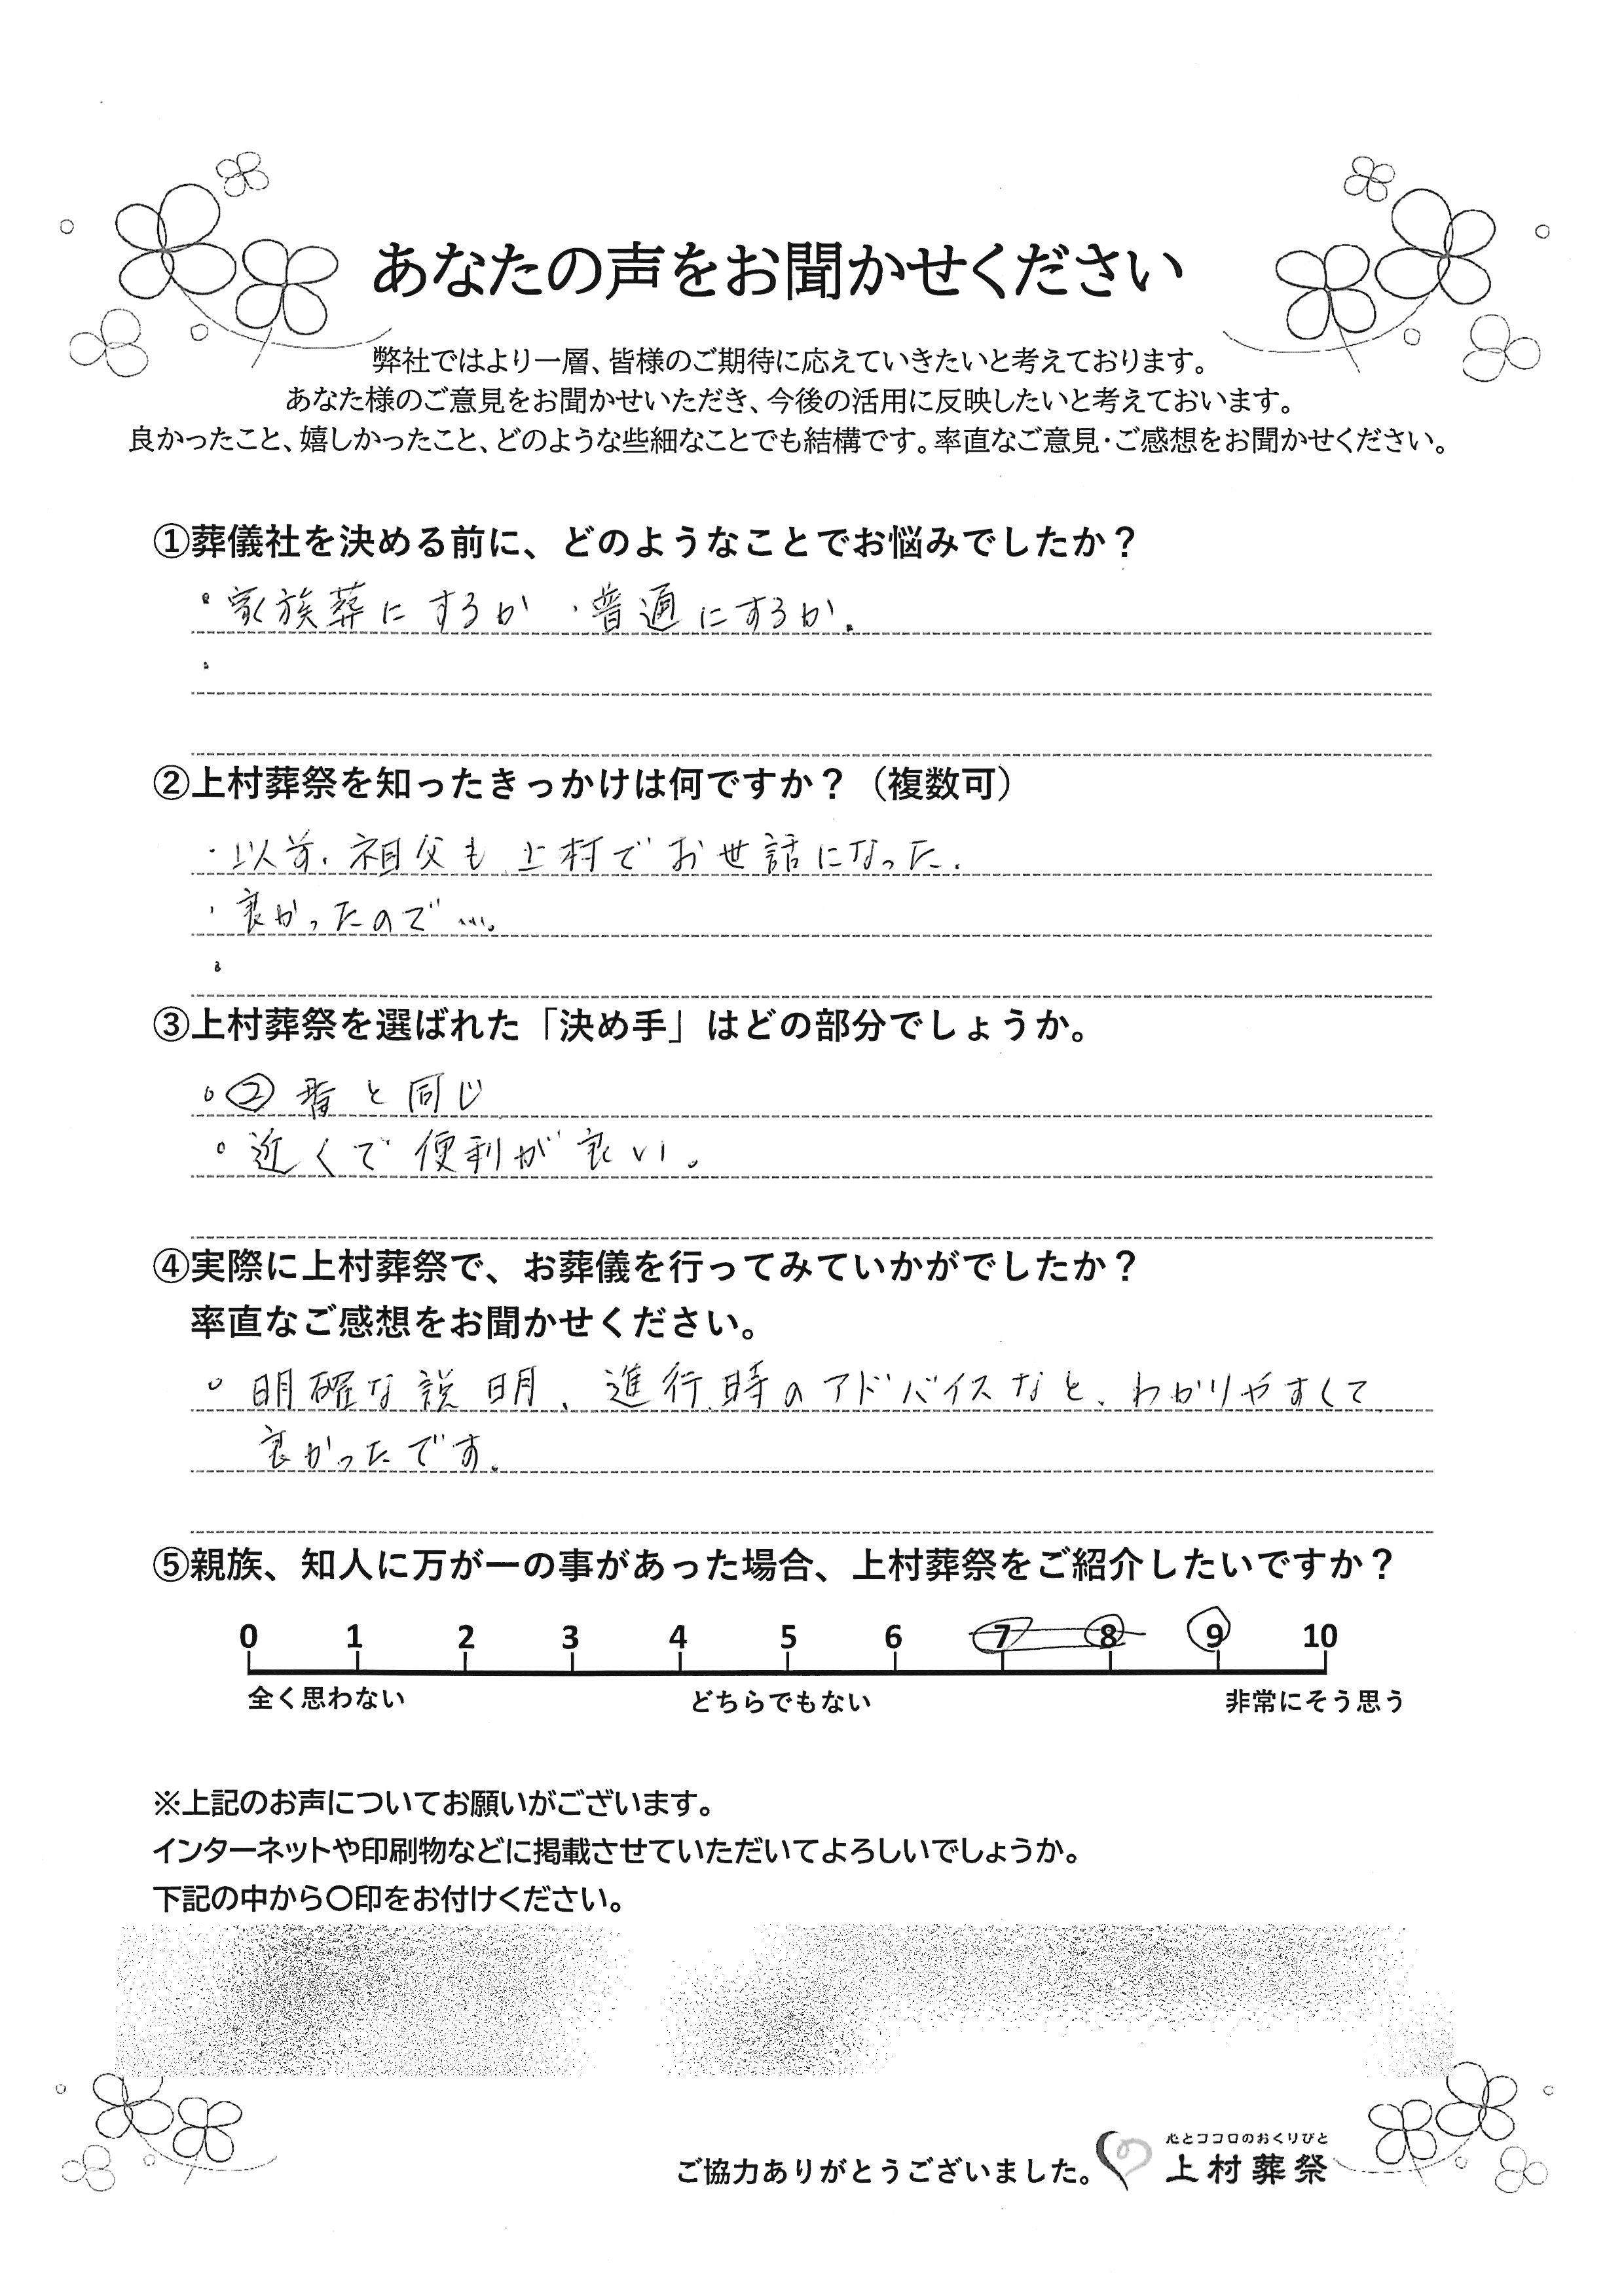 あなたの声をお聞かせください
弊社ではより一層、皆様のご期待に応えていきたいと考えております。
あなた様のご意見をお聞かせいただき、今後の活用に反映したいと考えておいます。
良かったこと、嬉しかったこと、どのような些細なことでも結構です。率直なご意見・ご感想をお聞かせください。
①葬儀社を決める前に、どのようなことでお悩みでしたか？
・家族葬にするか ・普通にするか。
・
②上村葬祭を知ったきっかけは何ですか？（複数可）
・以前、祖父も上村でお世話になった。
・良かったので…。
・
③上村葬祭を選ばれた「決め手」はどの部分でしょうか。
・② 番と同じ
・近くで便利が良い。
④実際に上村葬祭で、お葬儀を行ってみていかがでしたか？
率直なご感想をお聞かせください。
・明確な説明、進行時のアドバイスなと、わかりやすくて
良かったです。
⑤親族、知人に万が一の事があった場合、上村葬祭をご紹介したいですか？
0 1 2 3 4 5 6 7 8 9 10
全く思わない どちらでもない 非常にそう思う
※上記のお声についてお願いがございます。
インターネットや印刷物などに掲載させていただいてよろしいでしょうか。
下記の中から〇印をお付けください。
心とココロのおくりびと
ご協力ありがとうございました。 上村葬祭